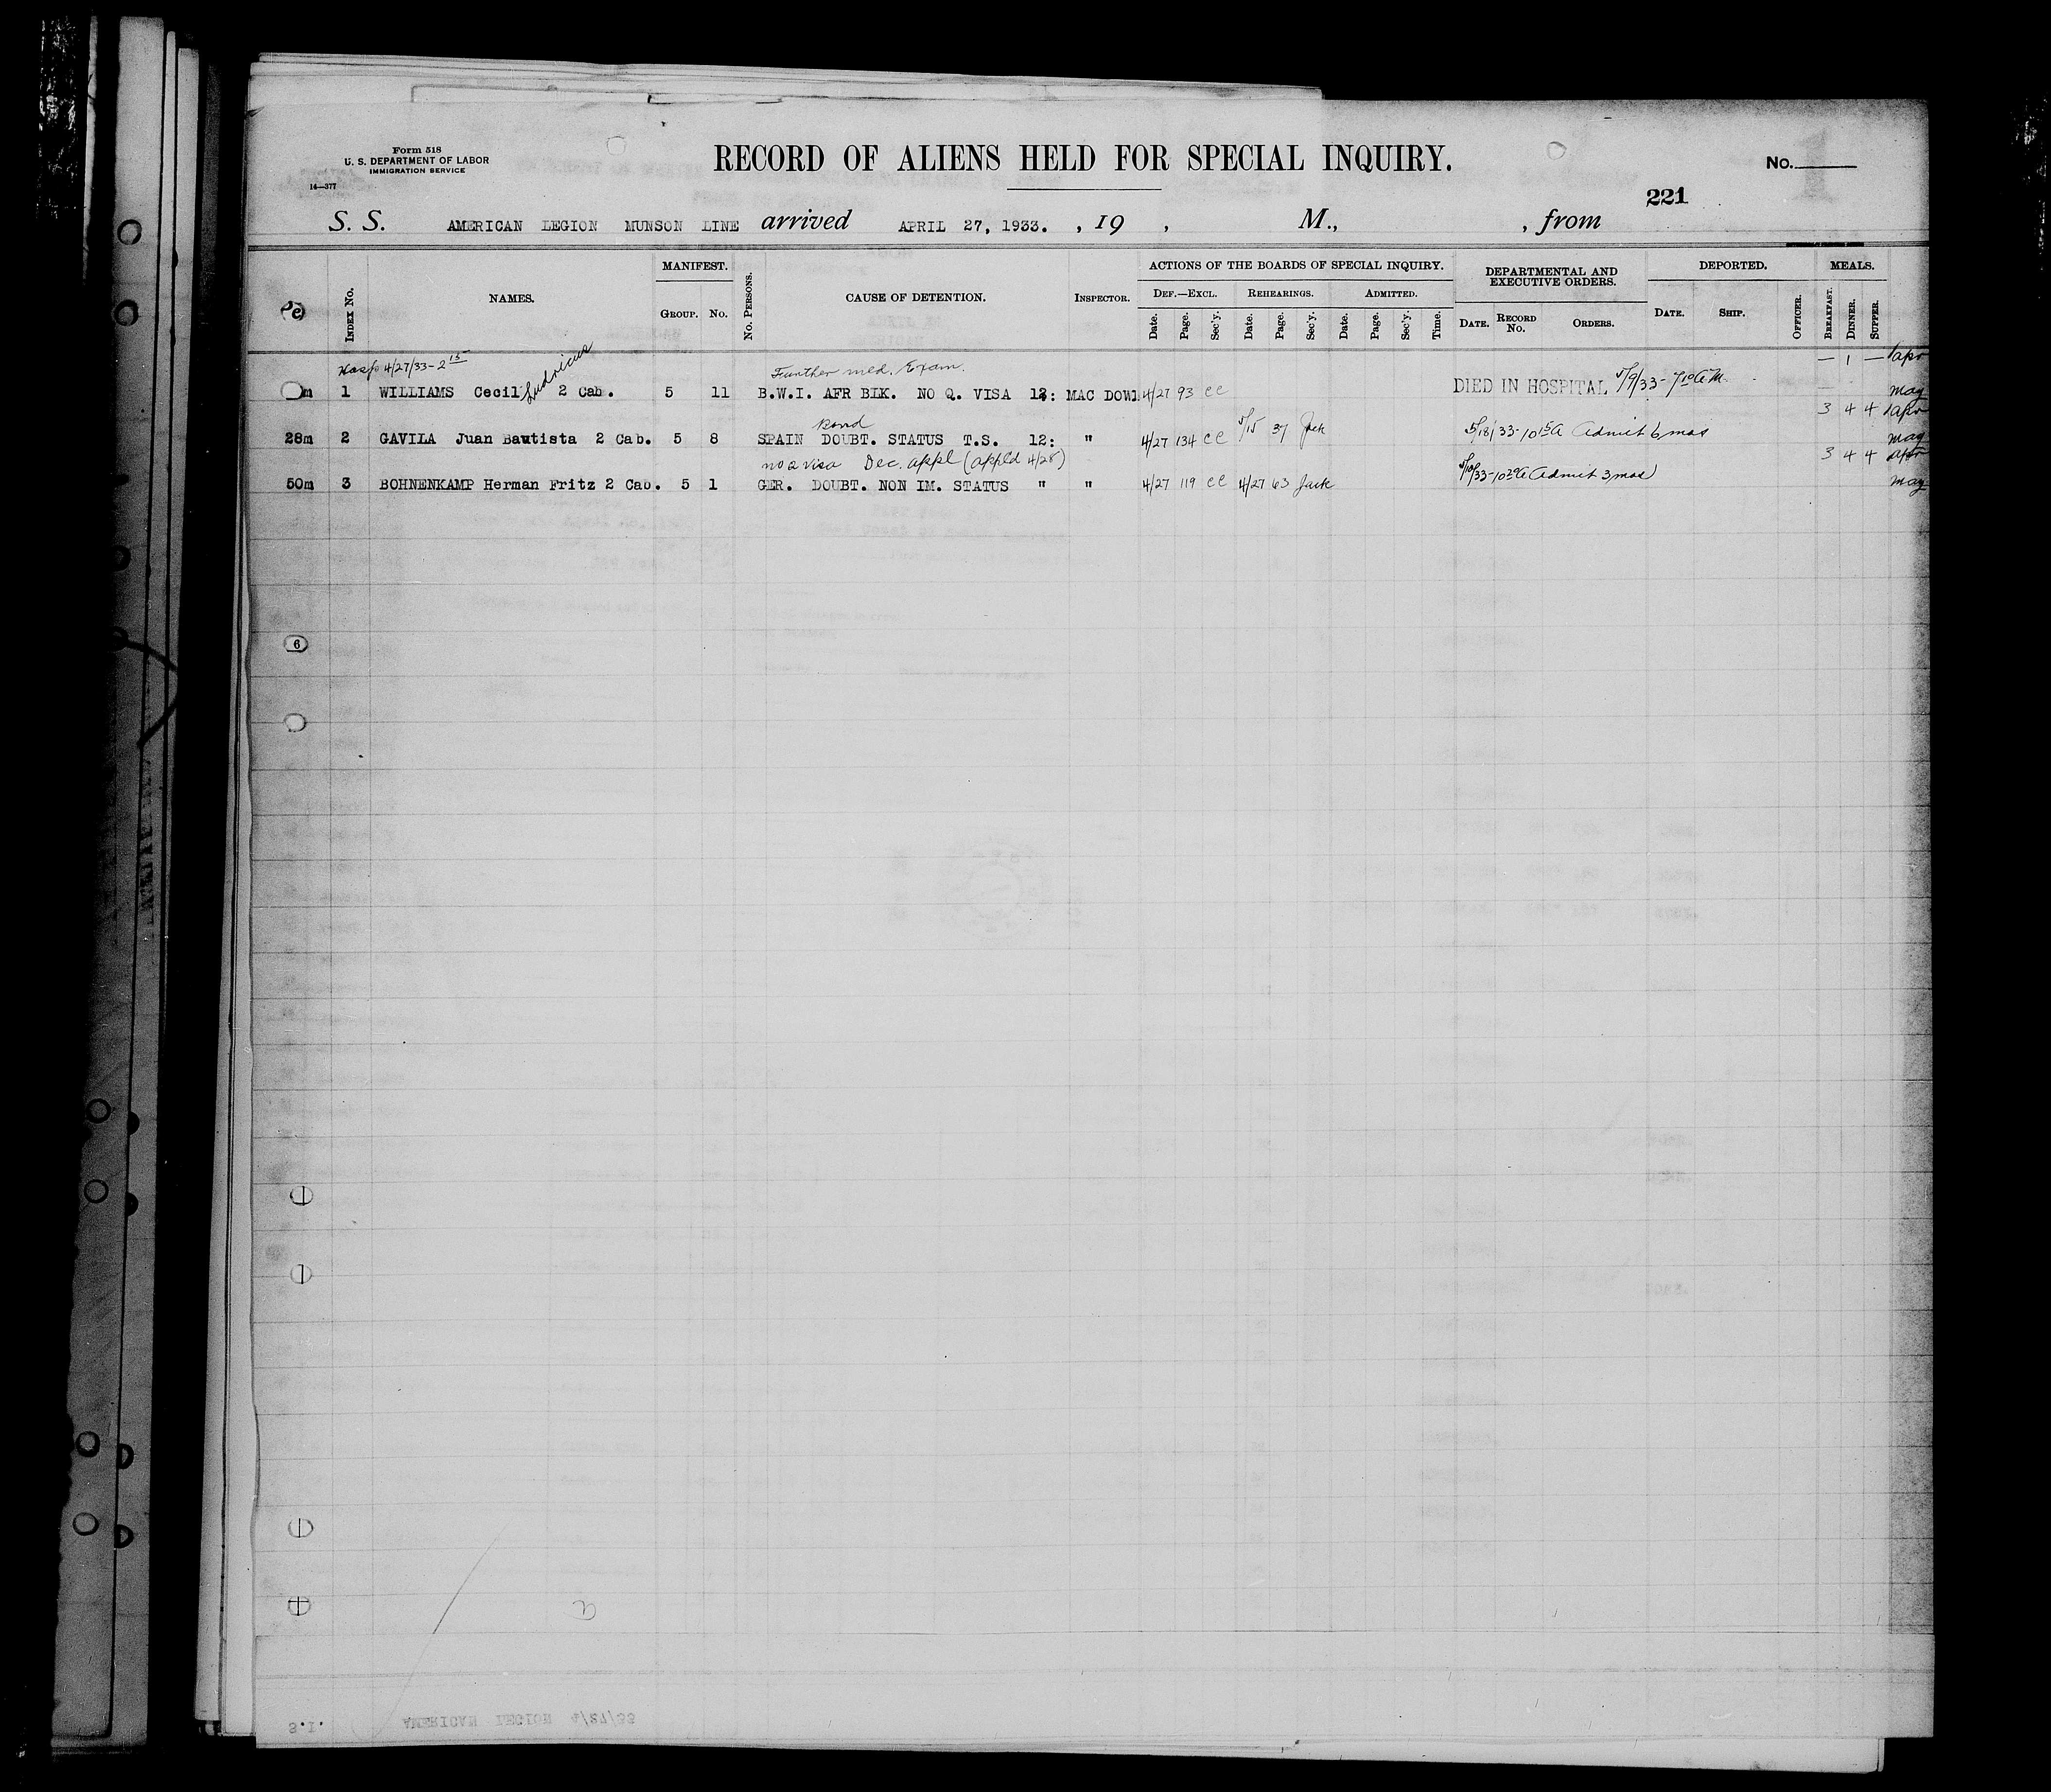 Form 518
U. S. DEPARTMENT OF LABOR
IMMIGRATION SERVICE
14—377
RECORD OF ALIENS HELD FOR SPECIAL INQUIRY.
No.
221
S. S. AMERICAN LEGION MUNSON LINE arrived APRIL 27, 1933. , 19 , M., , from
INDEX No. NAMES. MANIFEST. GROUP. No. No. PERSONS. CAUSE OF DETENTION. INSPECTOR. ACTIONS OF THE BOARDS OF SPECIAL INQUIRY. DEF.—EXCL. Date. Page. Sec'y. REHEARINGS. Date. Page. Sec'y. ADMITTED. Date. Page. Sec'y. Time. DEPARTMENTAL AND EXECUTIVE ORDERS. DATE. RECORD No. ORDERS. DEPORTED. DATE. SHIP. OFFICER. MEALS. BREAKFAST. DINNER. SUPPER.
Hosp 4/27/33-2 15 Ludricus Further med. Exam. — 1 — Apr
m 1 WILLIAMS Cecil 2 Cab. 5 11 B.W.I. AFR BLK. NO Q. VISA 12: MAC DOWL 4/27 93 CC DIED IN HOSPITAL 5/9/33-7 10 A.M. May
Bond 3 4 4 Apr
28m 2 GAVILA Juan Bautista 2 Cab. 5 8 SPAIN DOUBT. STATUS T.S. 12: " 4/27 134 CC 5/15 37 Jack 5/18/33-10 15 A Admit 6 mos May
no Q visa Dec. appl (appld 4/28) 3 4 4 Apr
50m 3 BOHNENKAMP Herman Fritz 2 Cab. 5 1 GER. DOUBT. NON IM. STATUS " " 4/27 119 CC 4/27 63 Jack 5/10/33-10 20 A Admit 3 mos May
6
S.I. AMERICAN LEGION 4/27/33